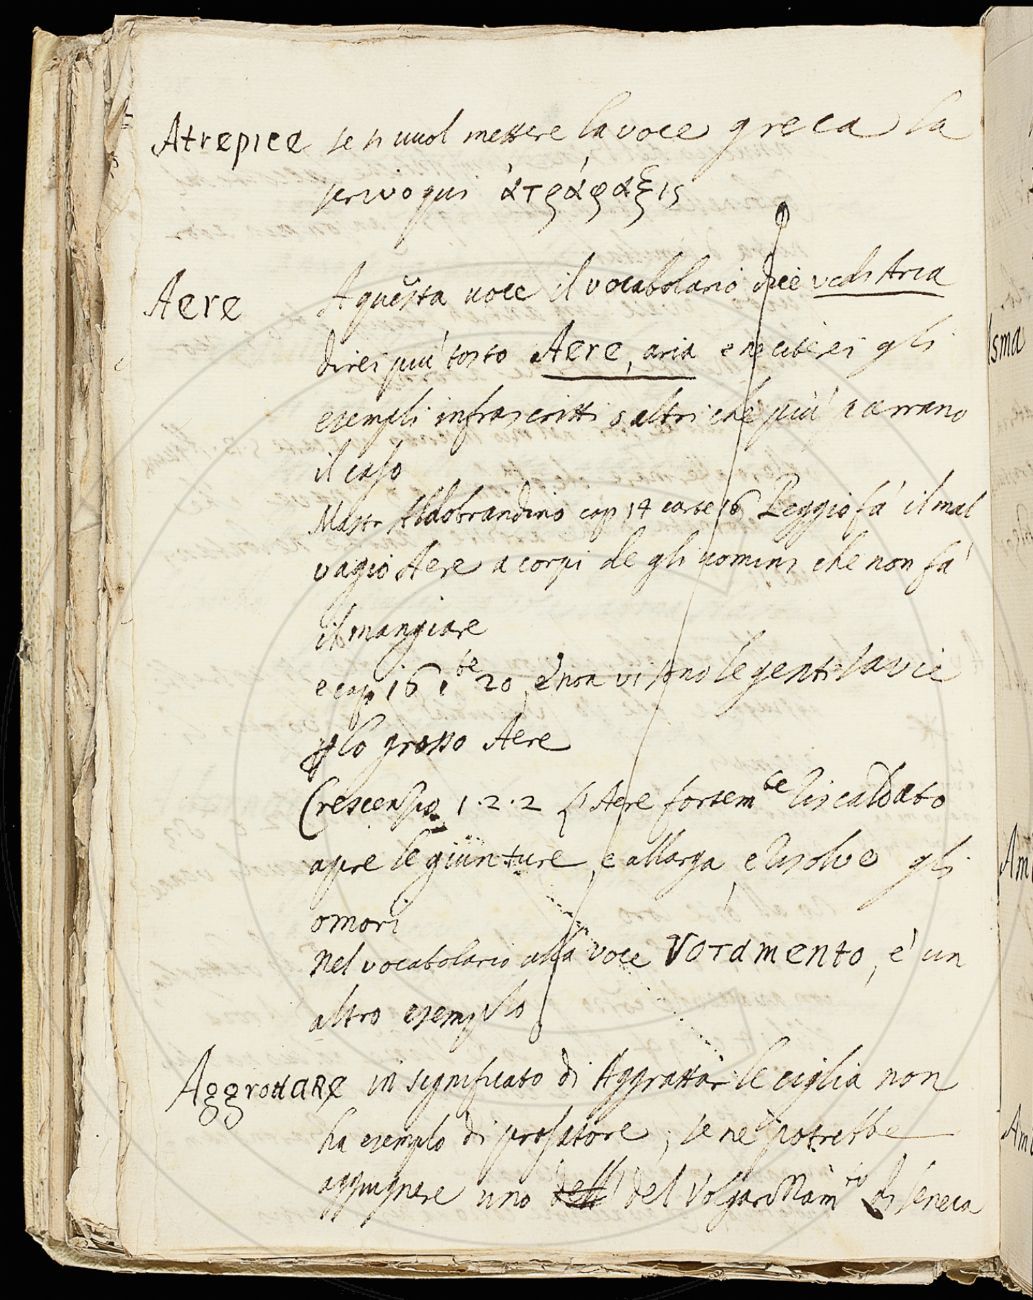 Atrepice se si vuol mettere la voce greca la
scrivo qui ἀτράφαξις
Aere A questa voce il vocabolario dice vedi Aria
direi piu tosto Aere, aria e ne citerei gli
esempli infrascritti o altri che più
il caso
Mastr Aldobrandino cap 14 carte 16 Peggio fà il mal
vagio Aere a corpi de gli uomini che non fà
il mangiare
e cap 16 cte 20, e non vi sono le genti savie
lo grosso Aere
Crescenzio 1.2.2 Aere fortemte riscaldato
apre le giunture, e allarga, e risolve gli
omori
Nel vocabolario alla voce Votamento, è un
altro esemplo
Aggrottare in significato di Aggrottar le ciglia non
ha esemplo di prosatore, se ne potrebbe
aggiugnere uno del Volgarizzamto di Seneca
sma
Am
Am